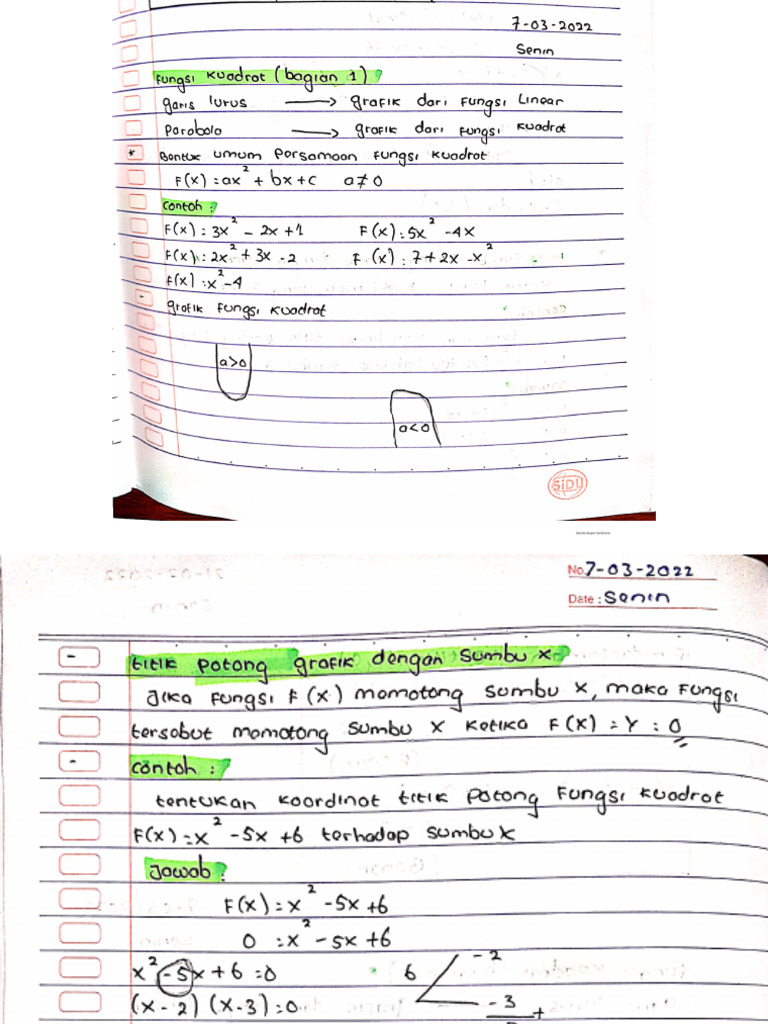 7-03-2022
Senin
Fungsi Kuadrat (bagian 1)
garis lurus → grafik dari Fungsi Linear
Parabola → grafik dari Fungsi Kuadrat
* Bentuk umum Persamaan Fungsi Kuadrat
F(x) = ax² + bx + c a ≠ 0
Contoh :
F(x) = 3x² - 2x + 1 F(x) = 5x² - 4x
F(x) = 2x² + 3x - 2 F(x) = 7 + 2x - x²
F(x) = x² - 4
- grafik Fungsi Kuadrat
a>0
a<0
SIDU
No. 7-03-2022
Date : Senin
- titik Potong grafik dengan Sumbu x
Jika Fungsi F(x) memotong Sumbu x, maka Fungsi
tersebut memotong Sumbu x ketika F(x) = Y = 0
- Contoh :
tentukan koordinat titik Potong Fungsi Kuadrat
F(x) = x² - 5x + 6 terhadap Sumbu x
Jawab :
F(x) = x² - 5x + 6
0 = x² - 5x + 6
x² - 5x + 6 = 0 6 -2
(x - 2) (x - 3) = 0 -3 +